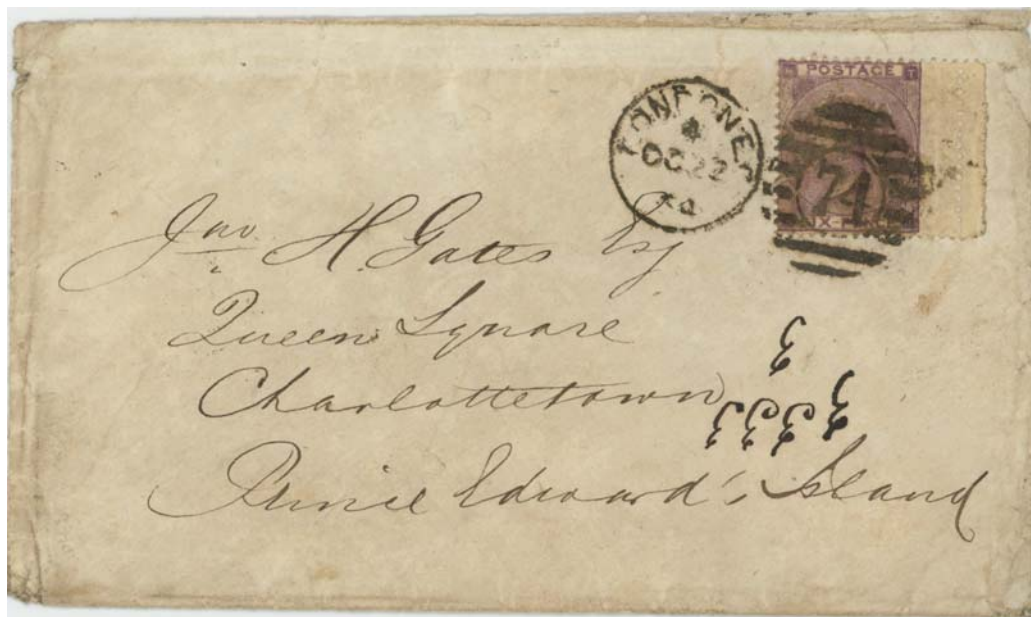 POSTAGE
LONDON E.C
4
OC 22
64
74
Jno. H. Gates Esq
Queen Square
Charlottetown
Prince Edward's Island
3
3 3 3 3 3